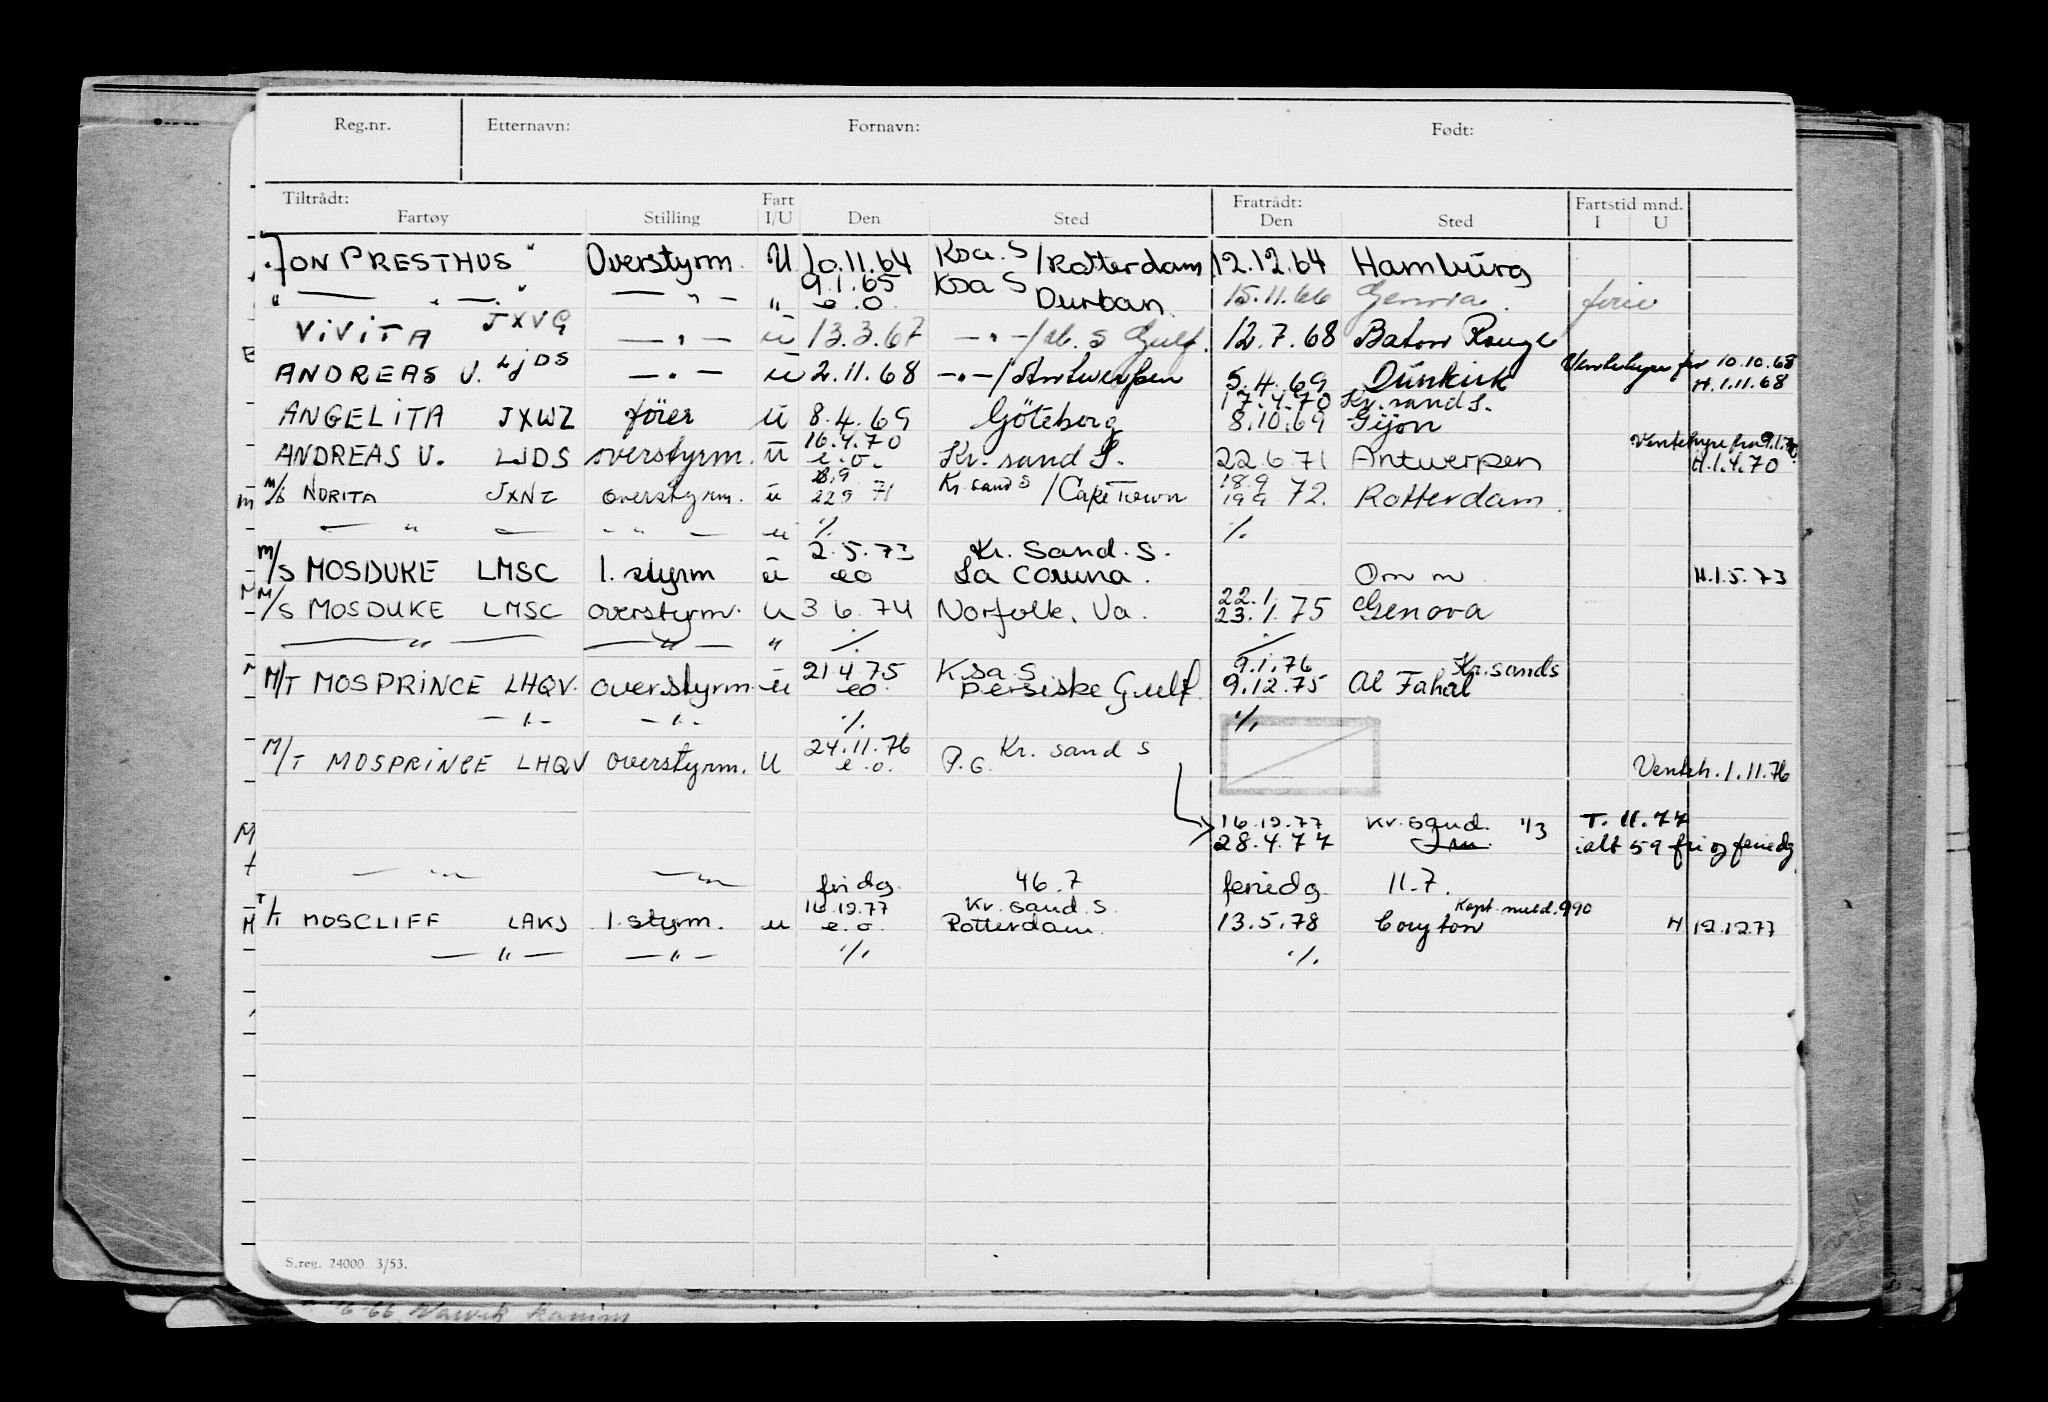 Reg.nr. Etternavn: Fornavn: Født:
Tiltrådt: Fart Fratrådt: Fartstid mnd.
Fartøy Stilling I/U Den Sted Den Sted I U
"JON PRESTHUS" Overstyrm. U 10.11.64 Ksa. S /Rotterdam 12.12.64 Hamburg
" — " — " — " — " 9.1.65 e.o. Ksa S Durban 15.11.66 Genova ferie
ViViTA JXVG — " — u 13.3.67 — " — /ob. s Gulf. 12.7.68 Baton Rouge
ANDREAS U. LJDS — " — u 2.11.68 — " — /Antwerpen 5.4.69 Dunkirk Ventehyre fra 10.10.68 H.1.11.68
ANGELITA JXWZ fører u 8.4.69 Göteborg 8.10.69 Gijon
17.4.70 Kr.sand S.
ANDREAS U. LJDS overstyrm. u 16.4.70 e.o. Kr. sand S. 22.6.71 Antwerpen Ventehyre fra 9.1.70 H.1.4.70
M/S NORITA JXNZ overstyrm. u 22.9 71 Kr.sand S /Cape Town 18.9 19.9 72. Rotterdam
— " — — " — u ./. ./.
M/S MOSDUKE LMSC 1. styrm u 2.5.73 eo Kr. Sand. S. La Coruna. Om m H.1.5.73
M/S MOSDUKE LMSC overstyrm. u 3 6.74 Norfolk, Va. 22.1 23.1.75 Genova
— " — — " — " ./. ./.
M/T MOSPRINCE LHQV. overstyrm. u 21 4.75 eo. Ksa S Persiske Gulf 9.1.76 Kr.sand S 9.12.75 Al Fahal
— " — — " — ./. ./.
M/T MOSPRINCE LHQV overstyrm. U 24.11.76 e.o. P.G. Kr. sand S Venteh. 1.11.76
16.12.77 Kr.sand. 1/3 T. 11.77
28.4.77 ialt 59 fri og feriedg
— " — — " — fridg. 46.7 feriedg 11.7.
T/T MOSCLIFF LAKJ 1. styrm. u 16.12.77 e.o. Kr. sand. S. Rotterdam. 13.5.78 Coryton Kapt. meld. 990 H 12.12.77
— " — — " — ./. ./.
S.reg. 24000 3/53.